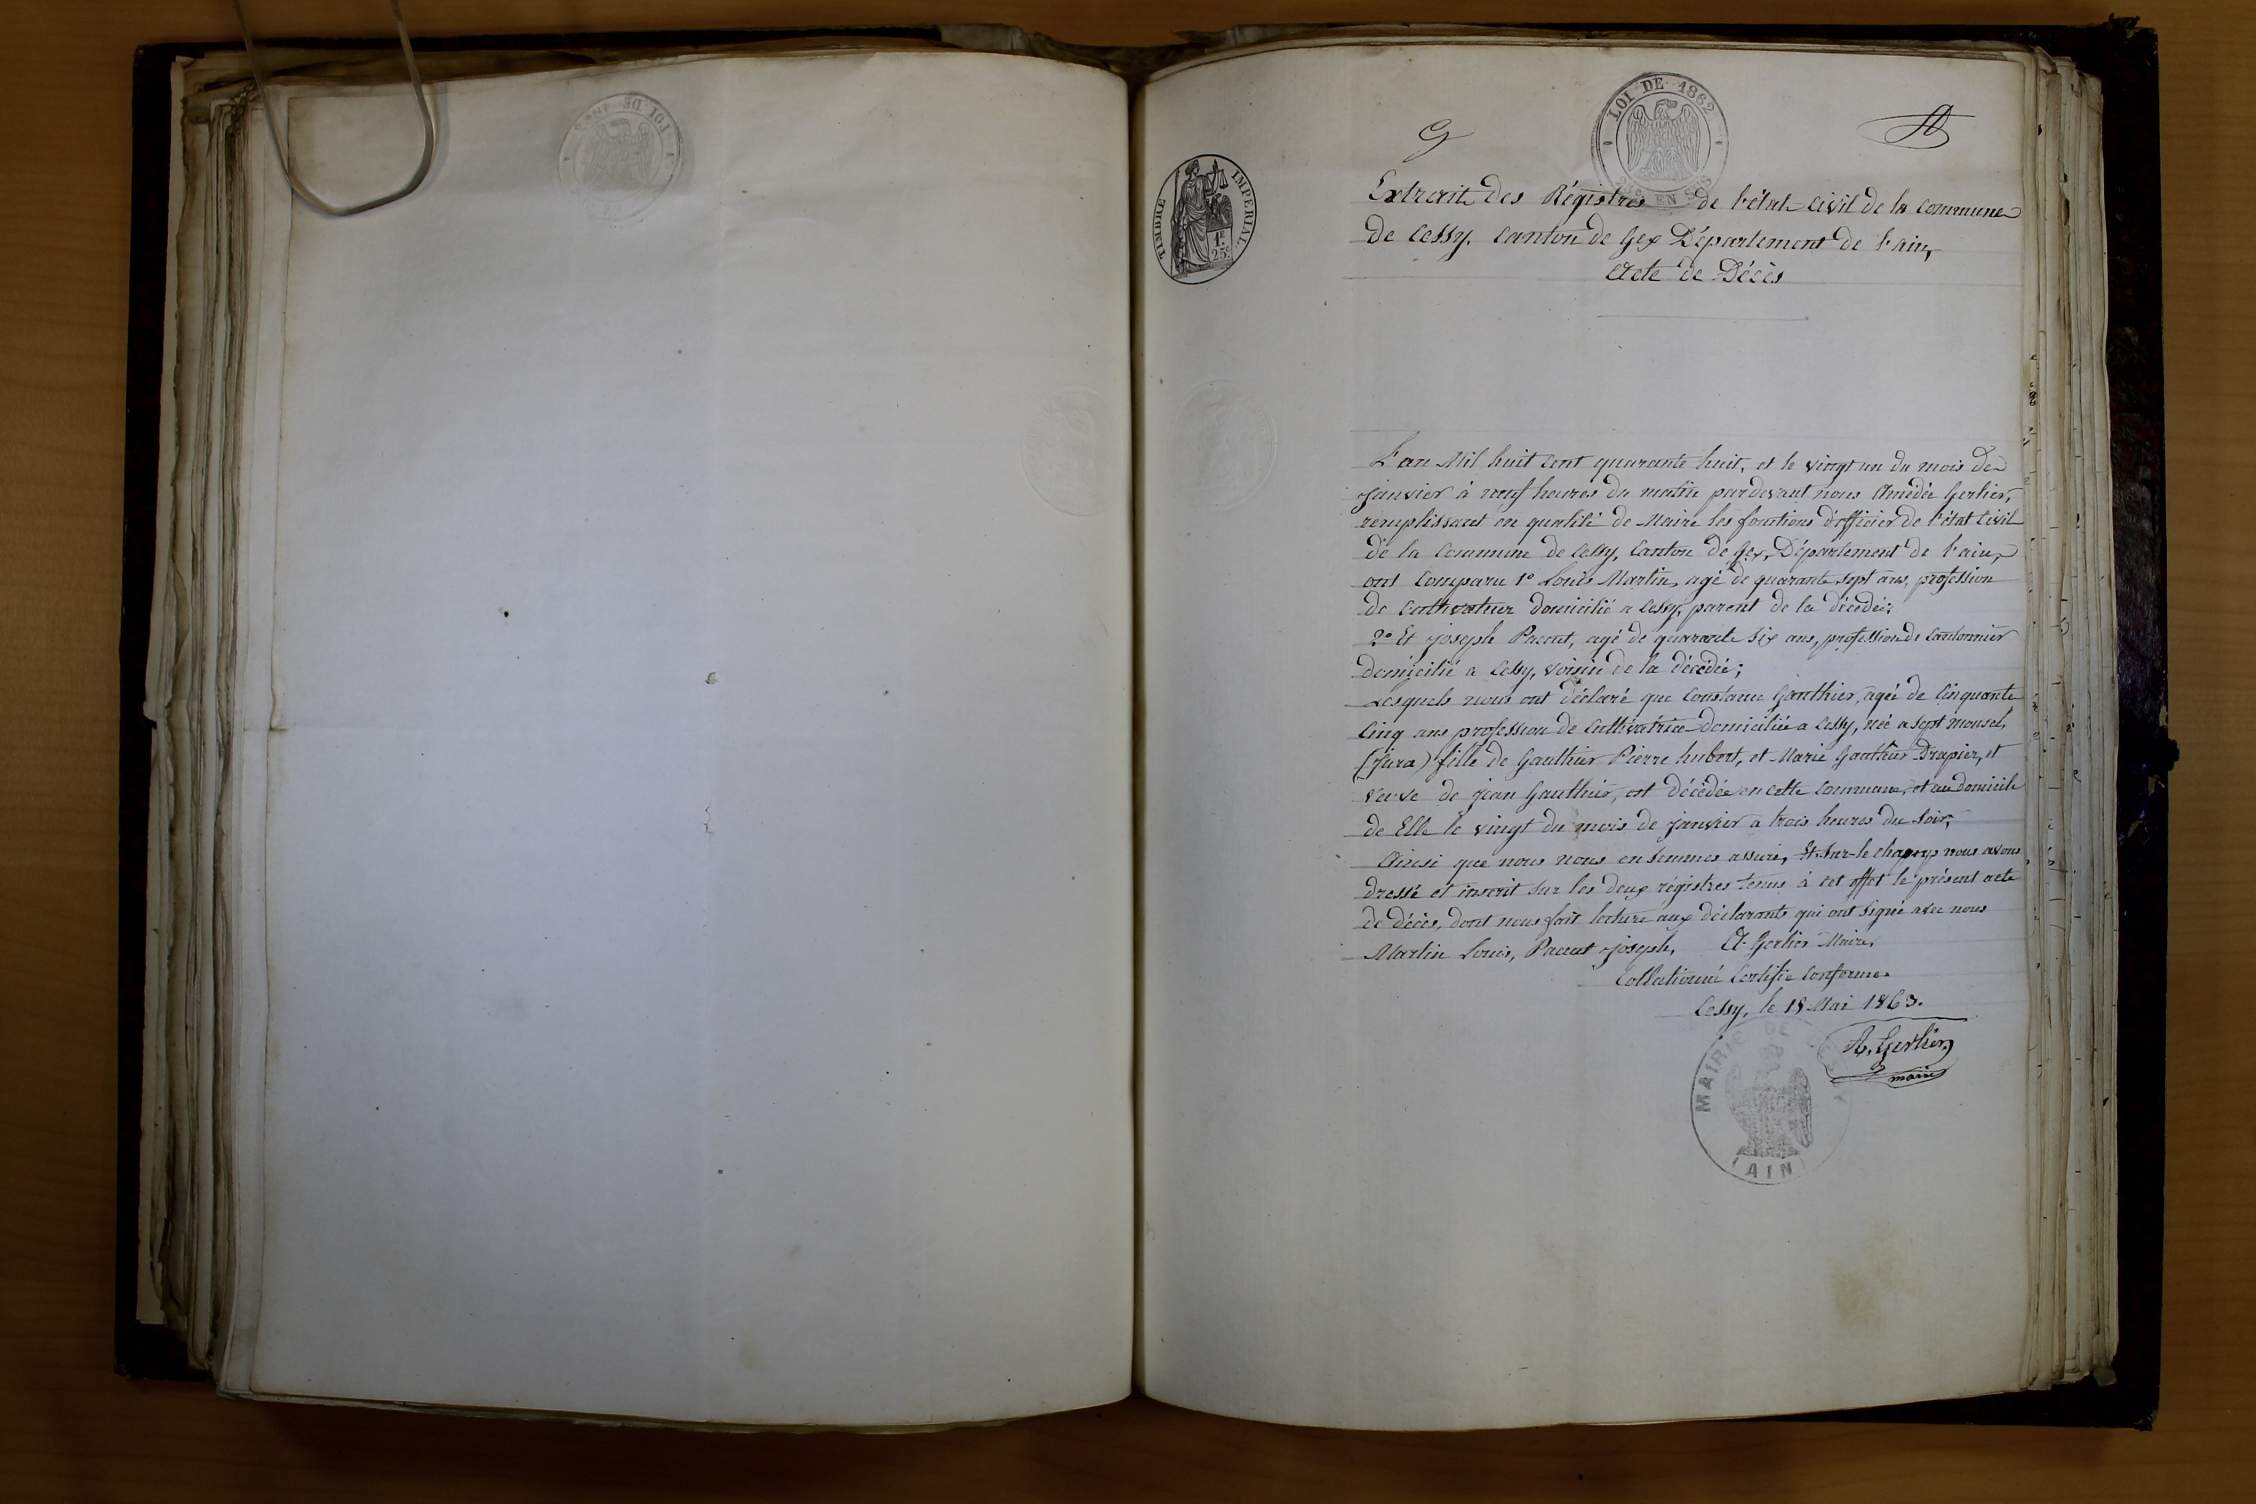 LOI DE 1862
EN SUS
TIMBRE IMPERIAL
1F
25c
Extrait des Régistres de l'état civil de la commune
de Cessy. Canton de Gex Département de l'ain,
Acte de Décès
L'an Mil huit cent quarante huit, et le vingt un du mois de
Janvier à neuf heures du matin pardevant nous Amédée Gerlier,
remplissant en qualité de Maire les fonctions d'officier de l'état Civil
de la Commune de Cessy, Canton de Gex, Département de l'ain,
ont Comparu 1° Louis Martin, agé de quarante sept ans, profession
de Cultivateur domicilié a Cessy, parent de la décédée;
2° Et joseph Pacaut, agé de quarante six ans, profession de Cantonnier
domicilié a Cessy, voisin de la décédée;
Lesquels nous ont déclaré que Constance Gauthier, agée de Cinquante
Cinq ans profession de Cultivatrice domiciliée a Cessy, née a Sept moncel,
(Jura) fille de Gauthier Pierre hubert, et Marie Gauthier Drapier, et
veuve de jean Gauthier, est décédée en cette Commune, et au domicile
de Elle le vingt du mois de janvier a trois heures du soir,
Ainsi que nous nous en sommes assuré, Et sur-le champ nous avons
dressé et inscrit sur les deux régistres tenus à cet effet le présent acte
de décès, dont nous fait lecture aux déclarants qui ont signé avec nous
Martin Louis, Pacaut joseph, A. Gerlier Maire,
Collationné Certifié Conforme.
Cessy, le 18 Mai 1863.
A. Gerlier
maire
MAIRIE DE
(AIN)